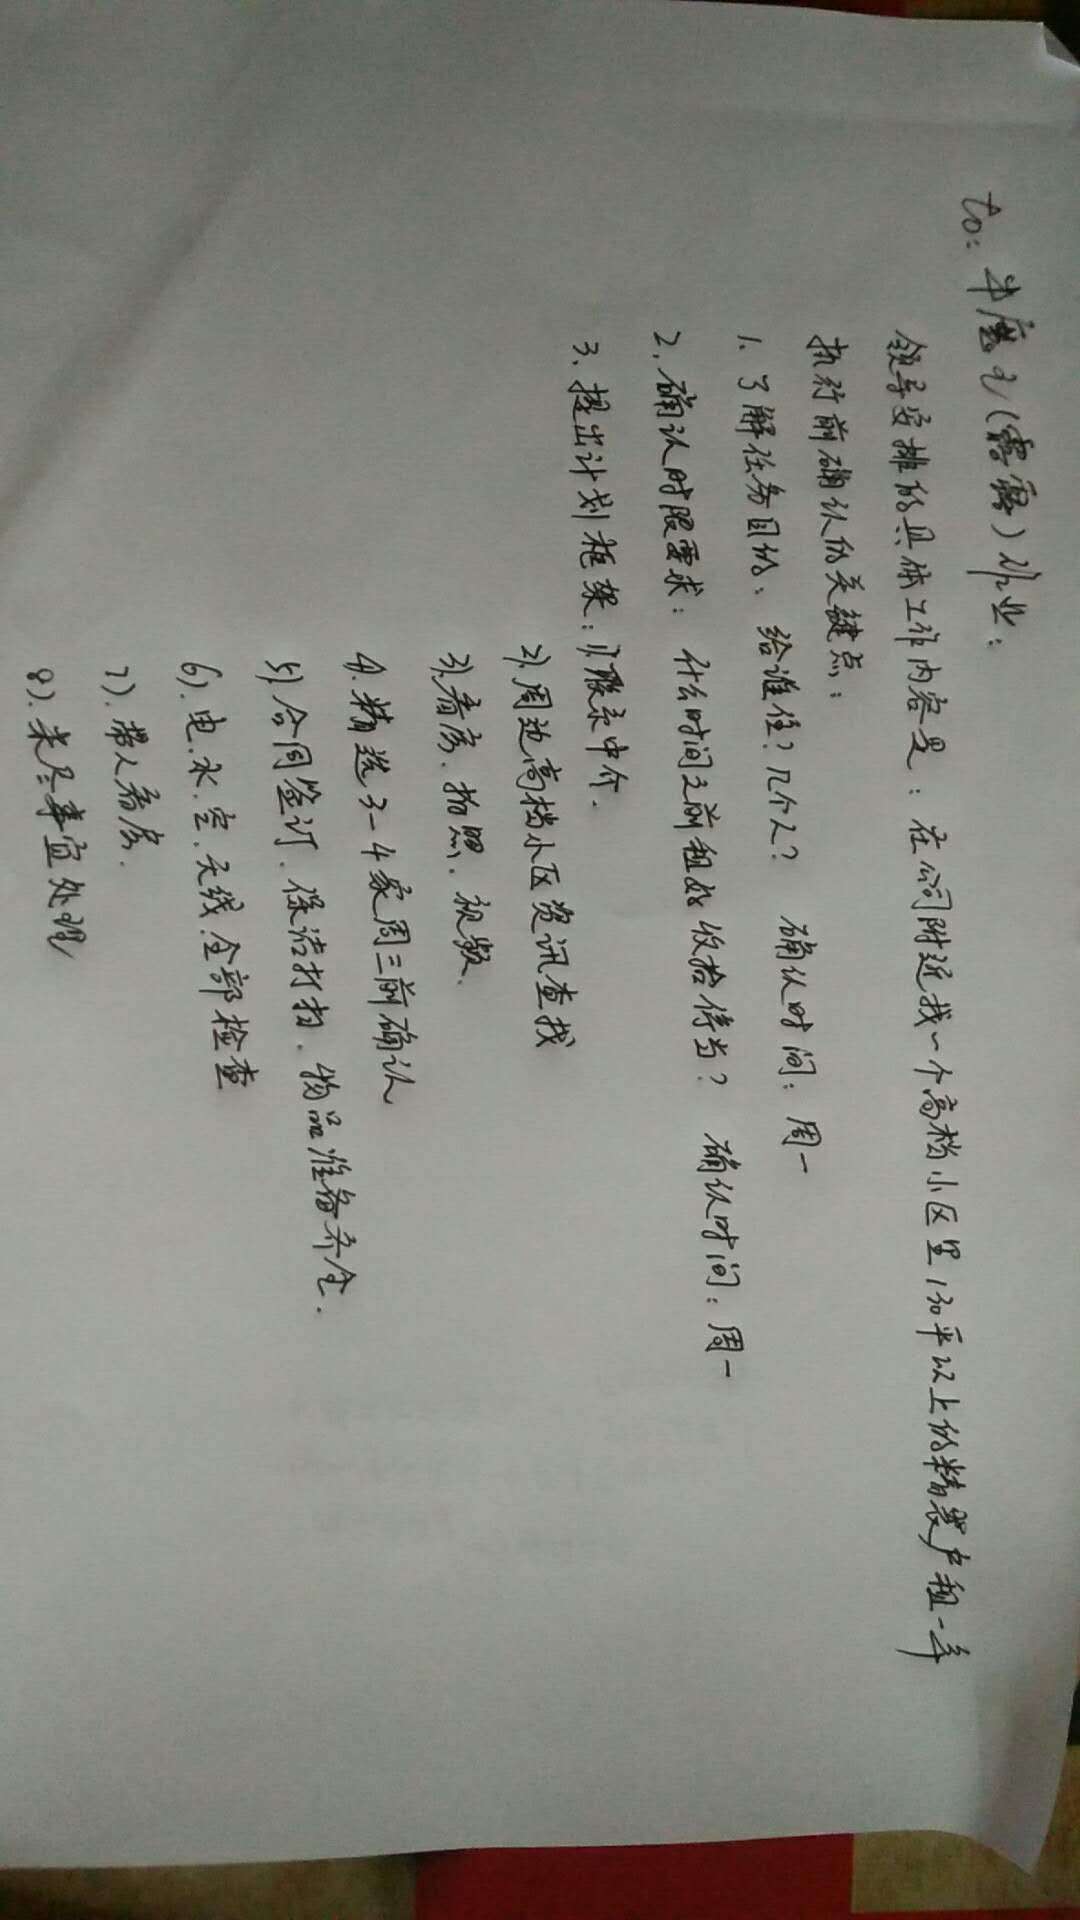 to: 牛魔王(露露)作业:
领导安排的具体工作内容是: 在公司附近找一个高档小区里130平以上的精装户租一年
执行前确认的关键点:
1、了解任务目的: 给谁住? 几个人? 确认时间: 周一
2、确认时限要求: 什么时间之前租好收拾停当? 确认时间: 周一
3、提出计划框架: 1).联系中介.
2).周边高档小区资讯查找
3).看房、拍照、视频.
4).精选3-4家周三前确认
5).合同签订、保洁打扫、物品准备齐全.
6).电.水.空.无线.全部检查
7).带人看房.
8).未尽事宜处理